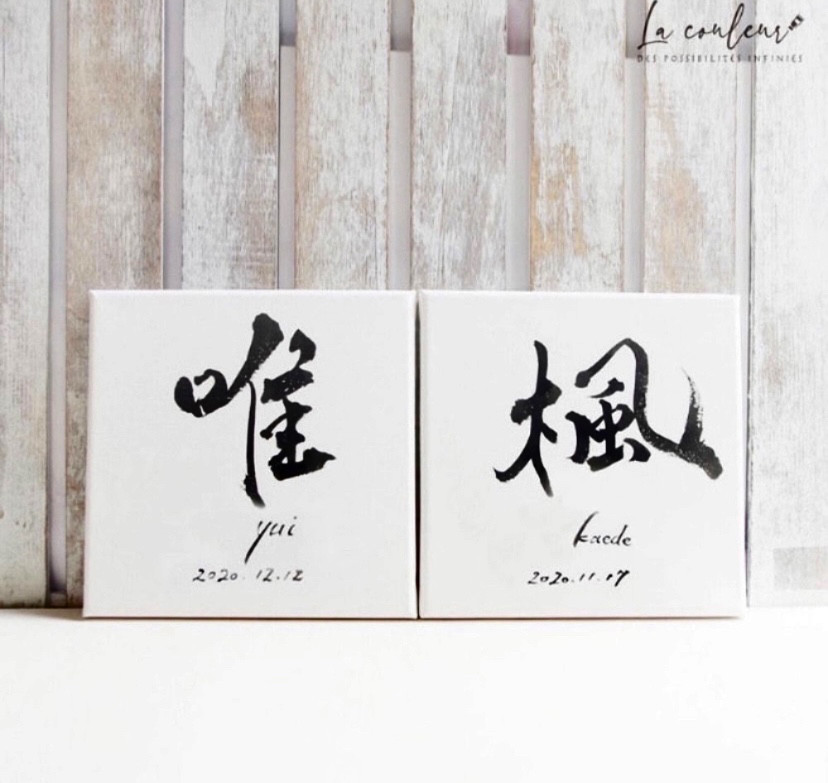 La couleur
DES POSSIBILITÉS INFINIES
唯
yui
2020.12.12
楓
kaede
2020.11.17